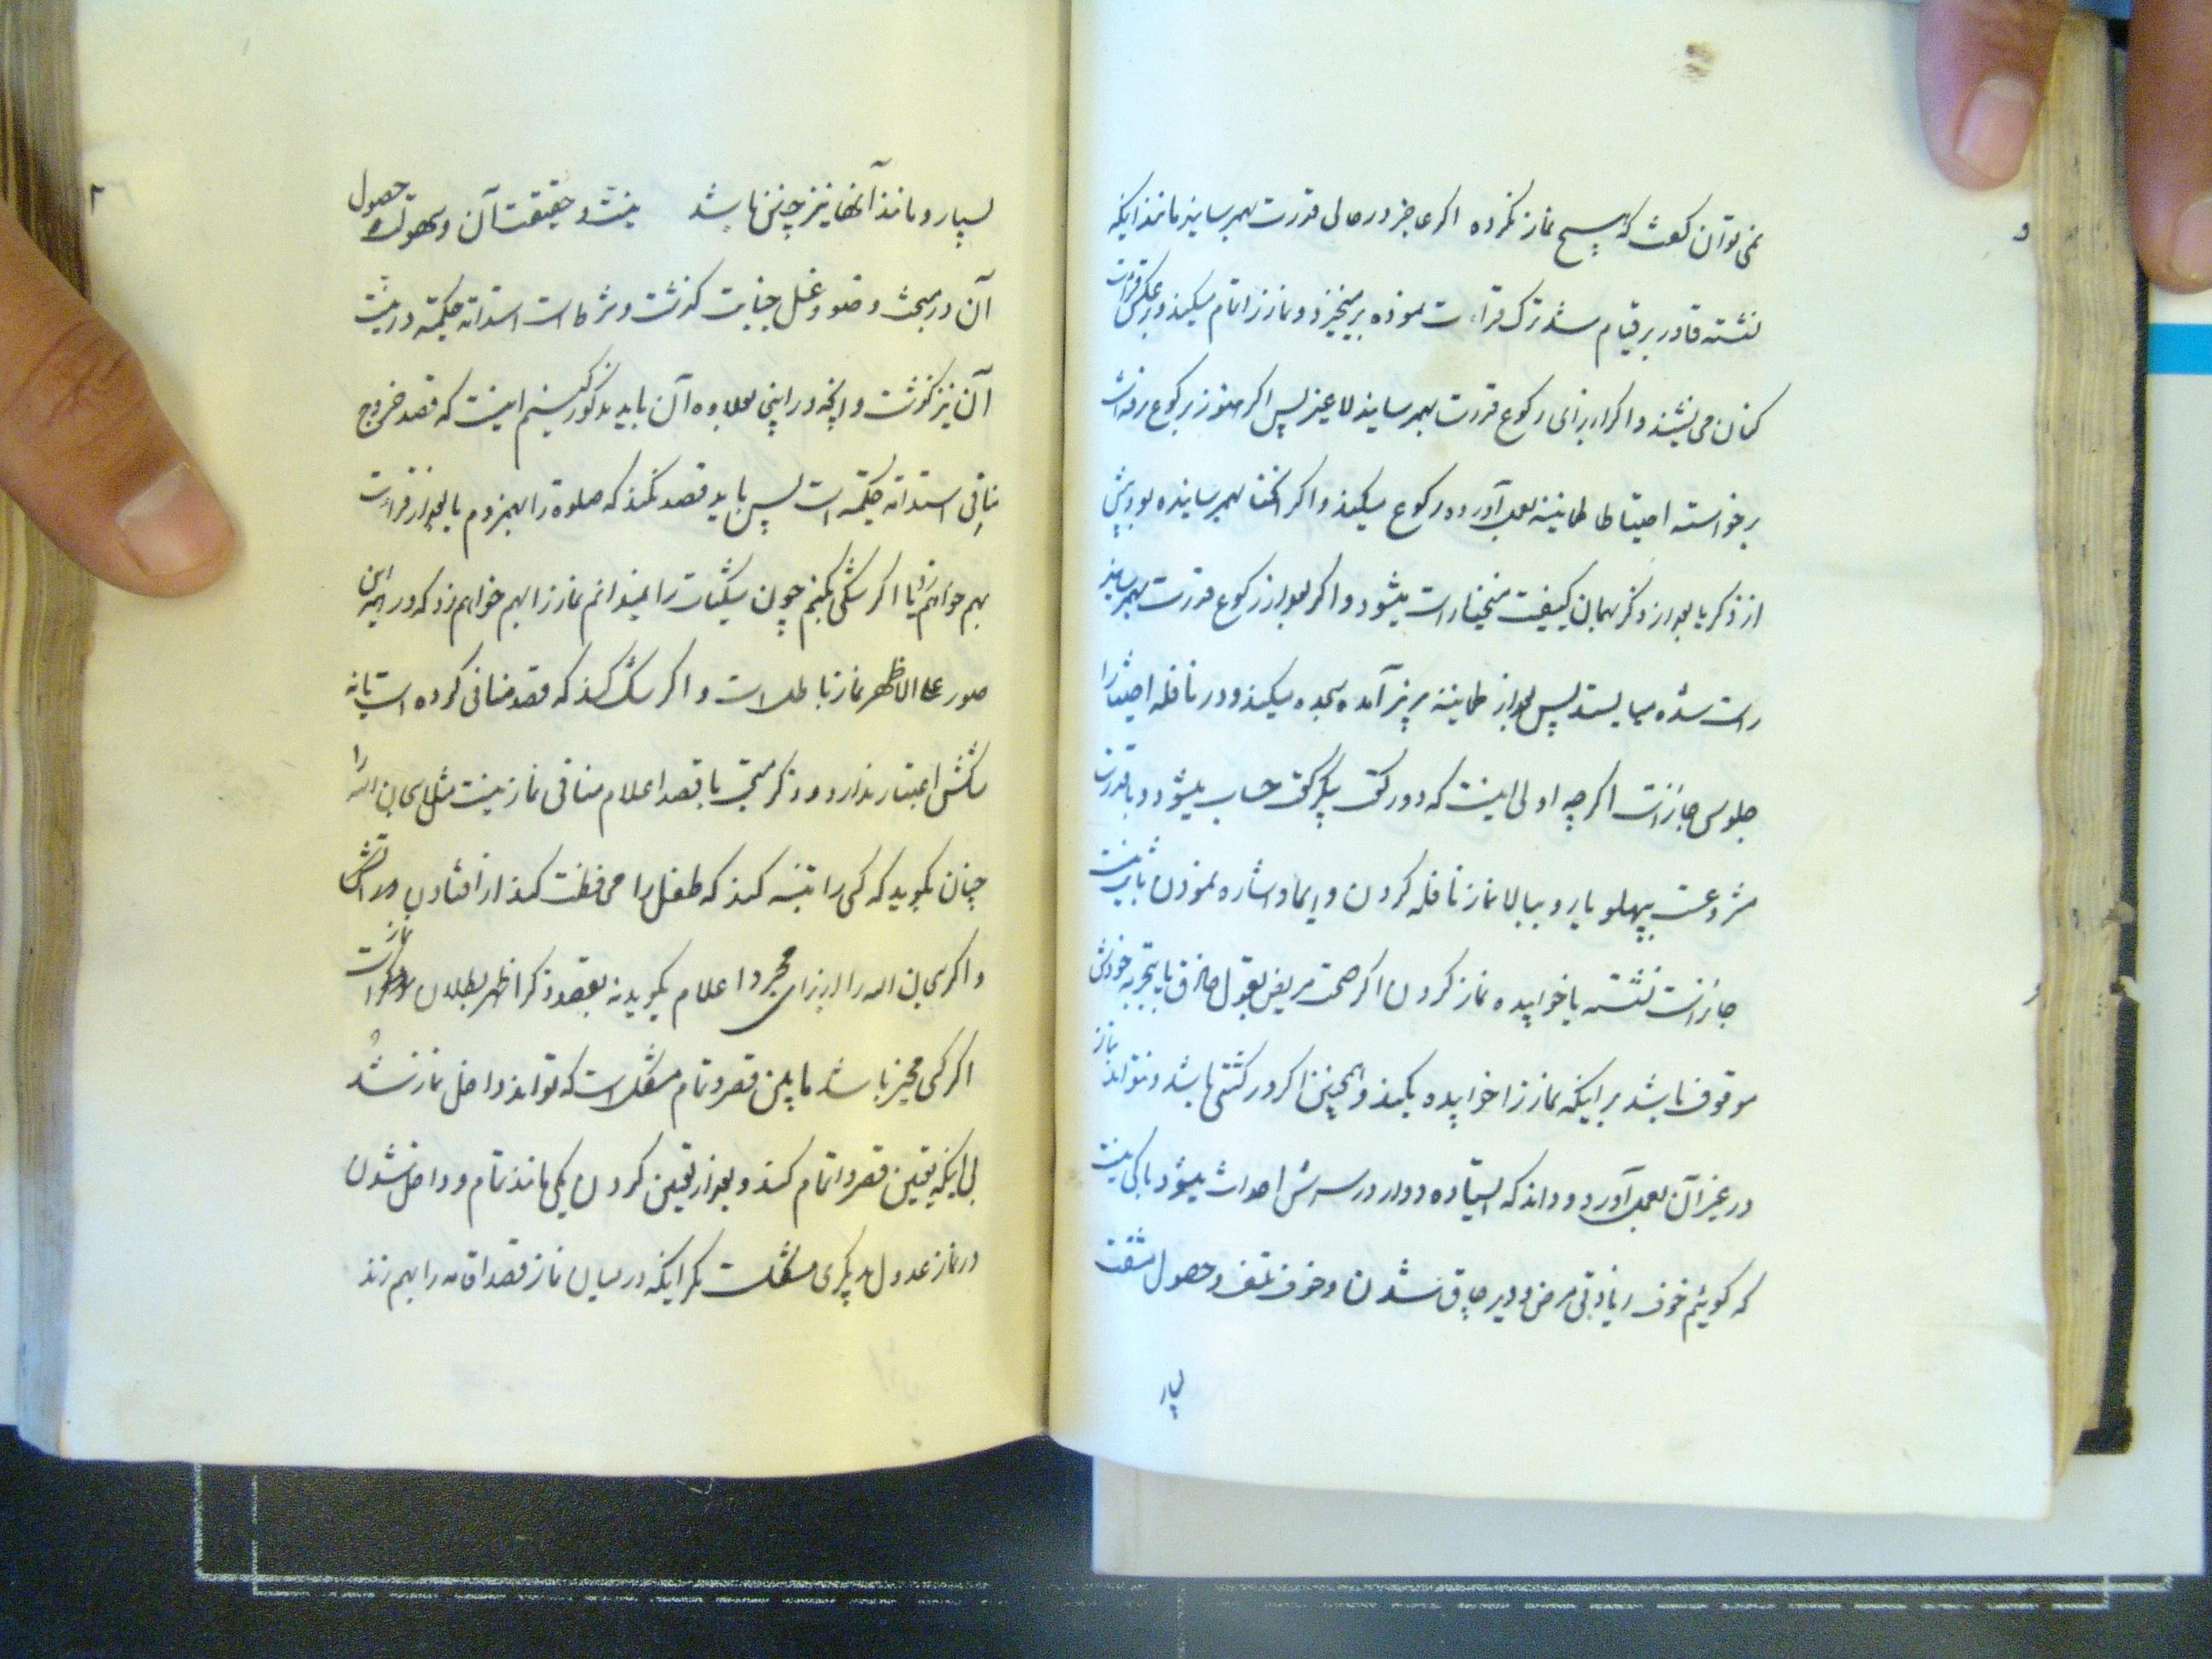 نمی توان گفت که هیچ نماز نکرده اگر عاجز در حالی قدرت بهمرساند مانند اینکه
نشسته قادر بر قیام شد ترک قراءت نموده برمیخیزد و نماز را تمام میکند و برعکس قرائت
کنان می نشیند و اگر از برای رکوع قدرت بهمرساند لا غیر پس اگر هنوز برکوع نرفته است
برخواسته احتیاطا طمانینه بعمل آورده رکوع میکند و اگر انحنا بهمرسانیده بود پیش
از ذکر یا بعد از ذکر بهمان کیفیت منحنیا راست میشود و اگر بعد از رکوع قدرت بهمرساند
راست شده میایستد پس بعد از طمانینه بزیر آمده سجده میکند و در نافله اختیارا
جلوس جایز است اگر چه اولی اینست که دو رکعت یکرکعت حساب میشود و با قدرت
مشروعیت بپهلو یا رو ببالا نماز نافله کردن و ایما و اشاره نمودن ثابت نیست
جایز است نشسته یا خوابیده نماز کردن اگر صحت مریض بقول حاذق یا بتجربه خودش
موقوف باشد بر اینکه نماز را خوابیده بکند و همچنین اگر در کشتی باشد و نتواند نماز
در غیر آن بعمل آورد و داند که ایستاده دوار در سرش احداث میشود باکی نیست
که گوئیم خوف زیادتی مرض و دیر چاق شدن و خوف تلف و حصول مشقت
بسیار
بسیار و مانند آنها نیز چنین باشد نیت و حقیقت آن و سهولت حصول
آن در مبحث وضو و غسل جنابت گذشت و شرط است استدامه حکمیه در نیت
آن نیز گذشت و آنچه در اینجا بعلاوه آن باید مذکور کنیم اینست که قصد خروج
منافی استدامه حکمیه است پس باید قصد نکند که صلوة را بهم زدم یا بعد از قرائت
بهم خواهم زد یا اگر شکی بکنم چون شکیات را نمیدانم نماز را بهم خواهم زد که در همه این
صور علی الاظهر نماز باطل است و اگر شک کند که قصد منافی کرده است یا نه
شکش اعتبار ندارد و ذکر مستحبی با قصد اعلام منافی نماز نیست مثلا سبحان الله را
چنان بگوید که کسی را تنبیه کند که طفل را محافظت کند از افتادن در آتش
و اگر سبحان الله را از برای مجرد اعلام بگوید نه بقصد ذکر اظهر بطلان نماز است
اگر کسی مخیر باشد مابین قصر و تمام مشکل است که تواند داخل نماز شد
بی اینکه تعیین قصر و اتمام کند و بعد از تعیین کردن یکی مانند تمام و داخل شدن
در نماز عدول بدیگری مشکل است مگر اینکه در میان نماز قصد اقامه را بهم زند